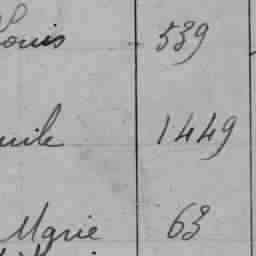 Louis 539
1449
Marie 63